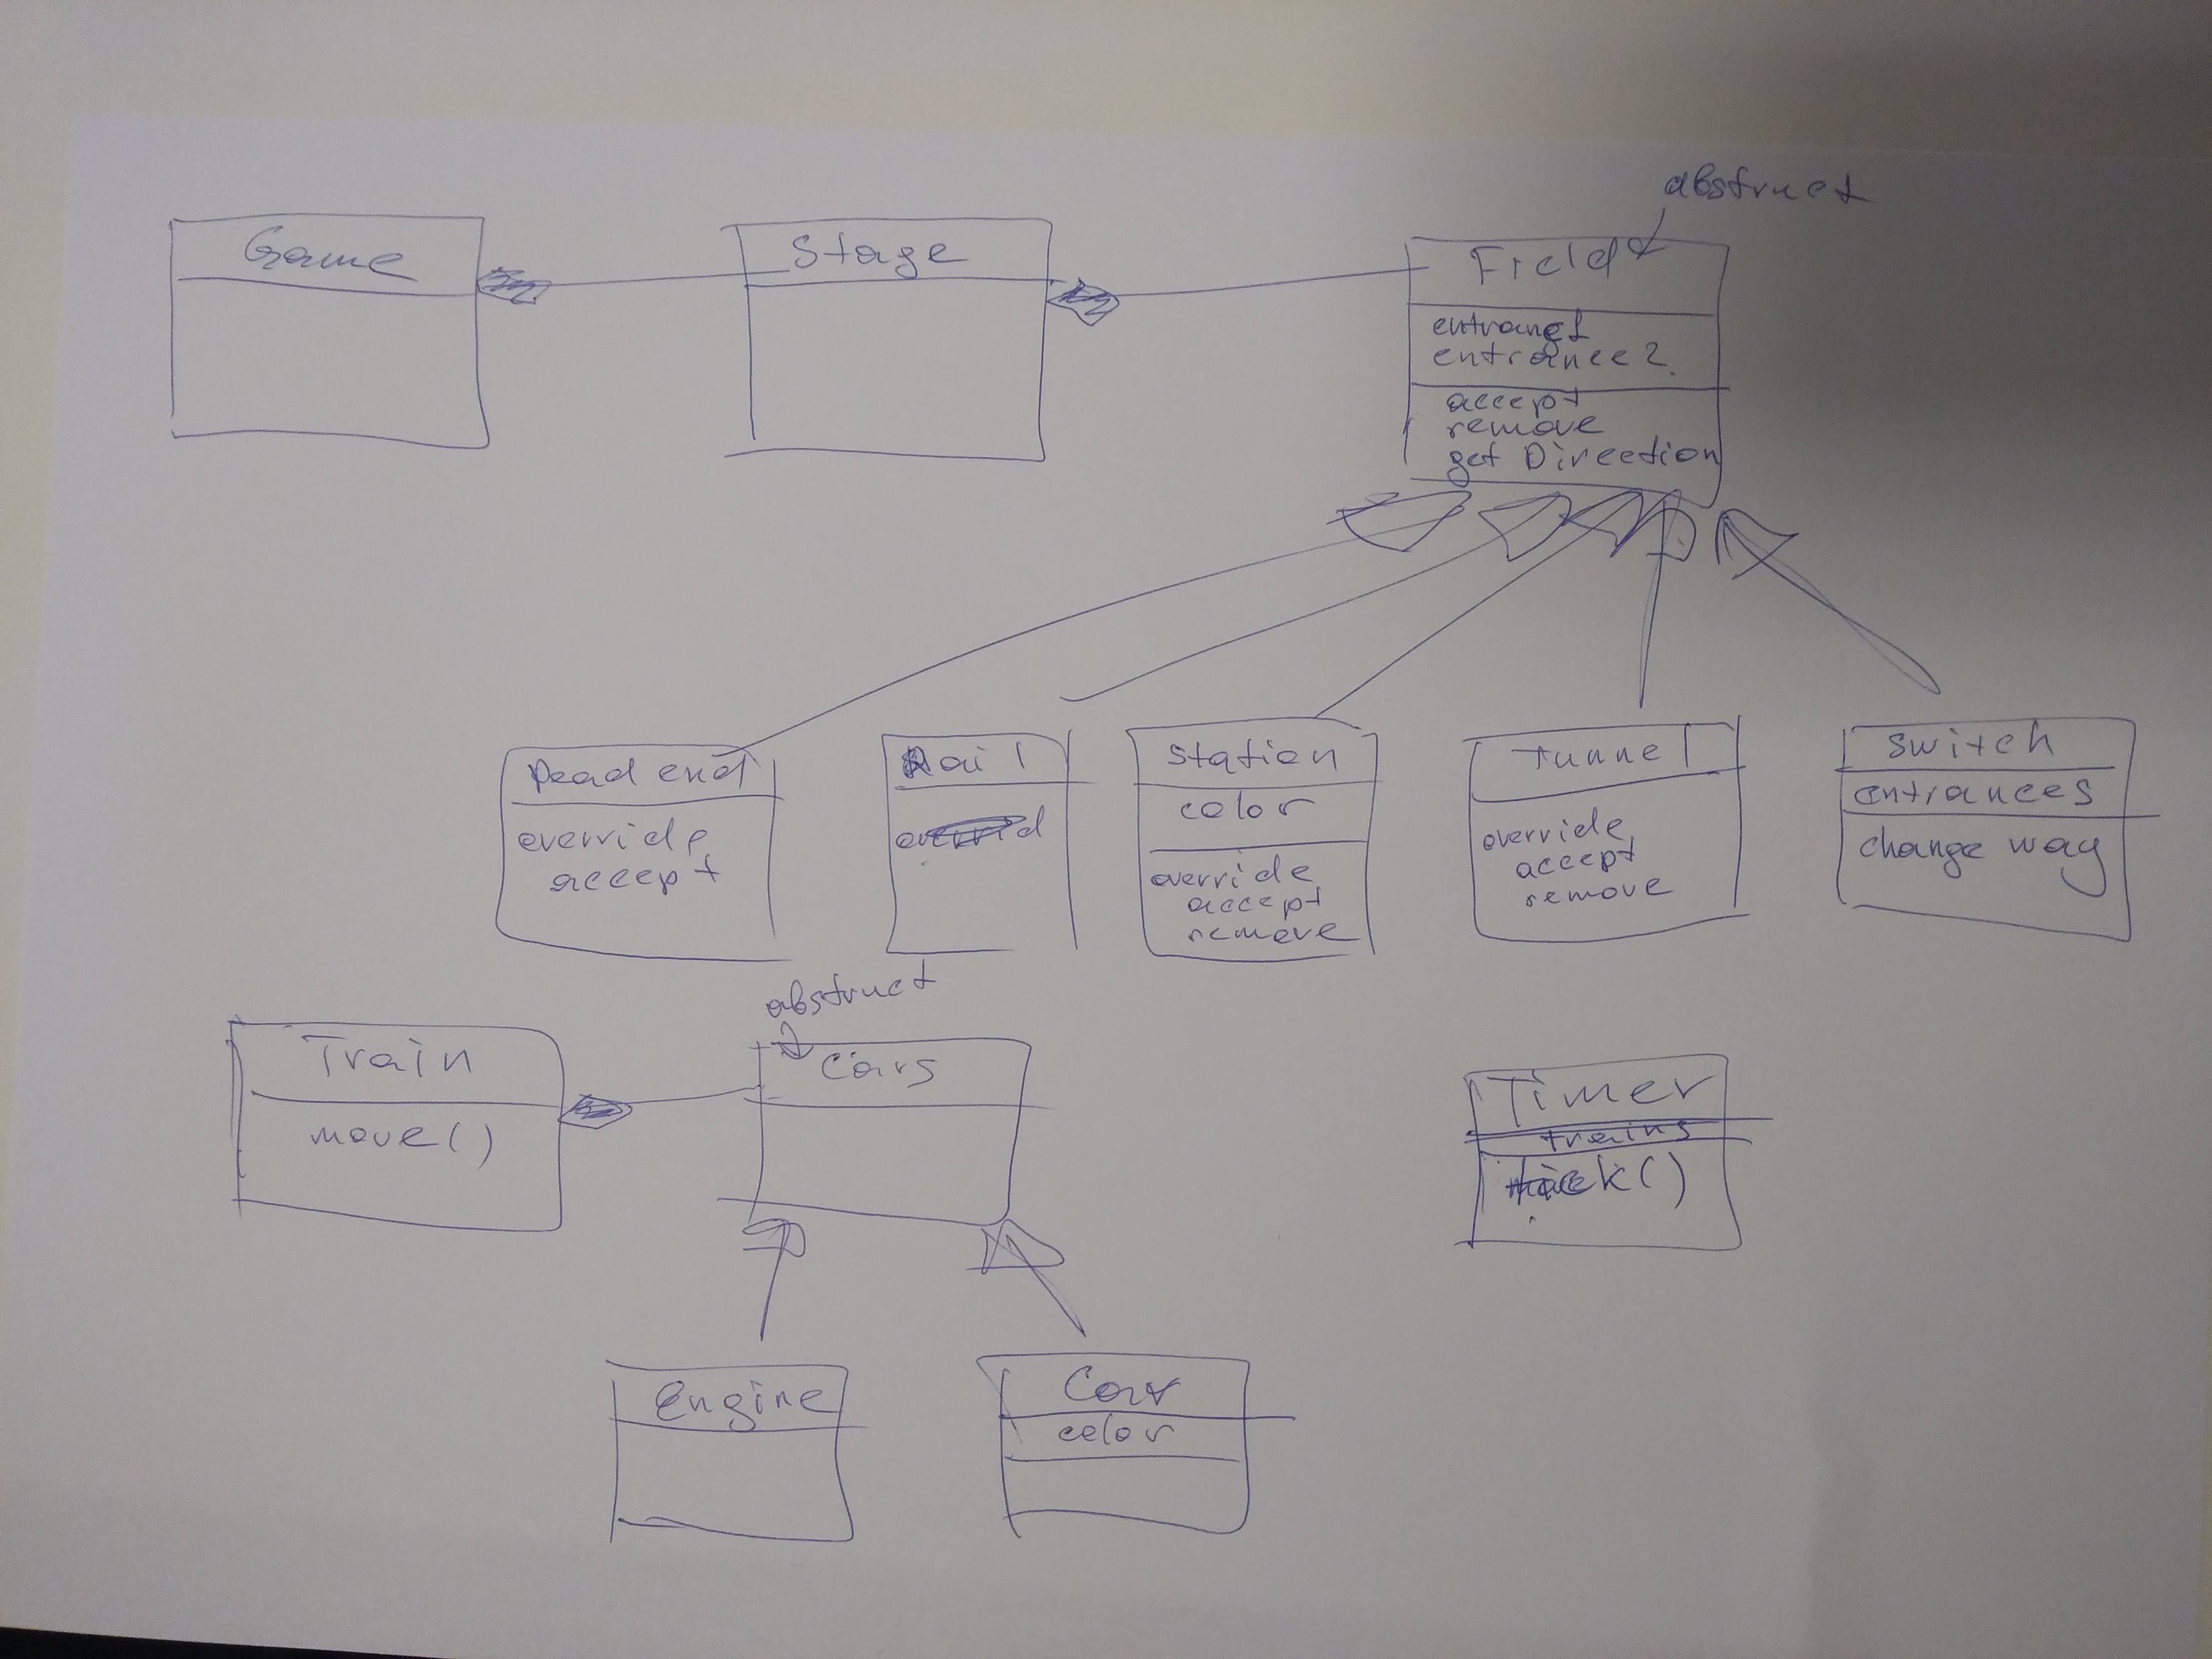 abstruct
Game
Stage
Field
entranc1
entrance 2
accept
remove
get Direction
Dead end
override
accept
Rail
Station
color
override
accept
remove
Tunnel
override
accept
remove
Switch
entrances
change way
abstruct
Train
move()
Cars
Timer
trains
tick()
Engine
Car
color